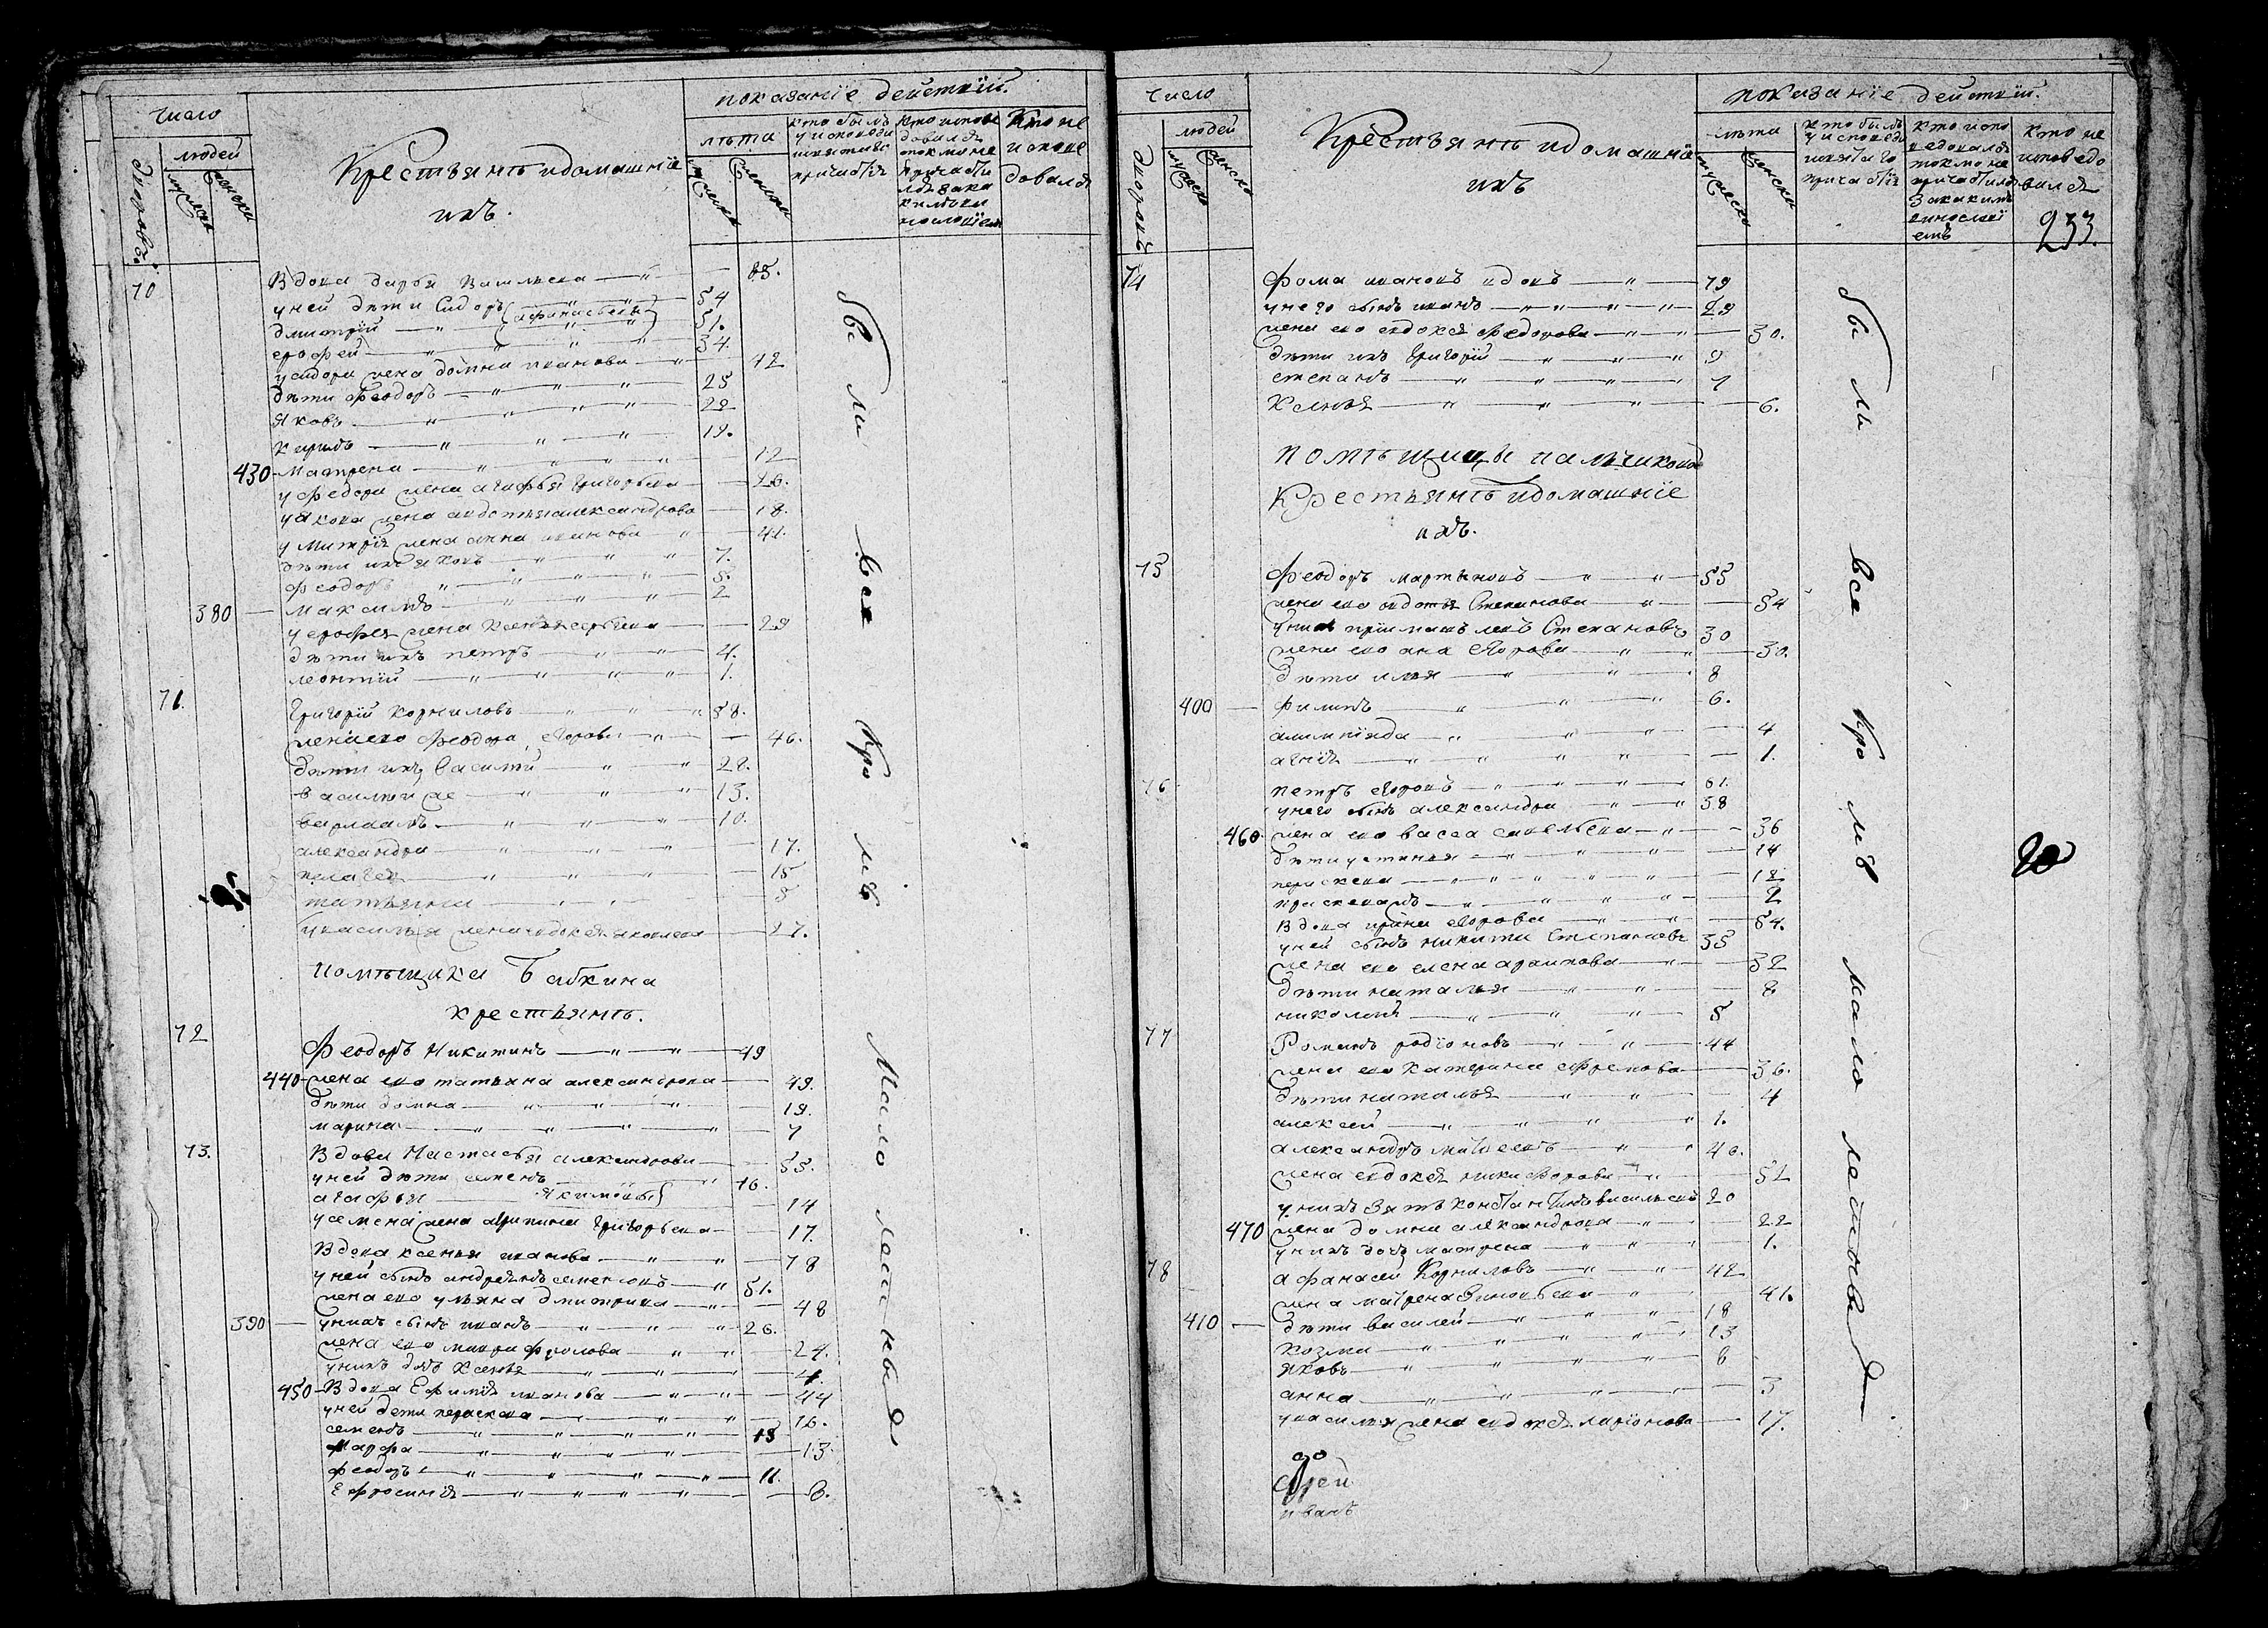 число
людей
дворовъ
мужеска
женска
Крестьянъ и домашнїе
ихъ.
показанїе действїй.
лѣта
мужеска
женска
кто былъ
у исповеди
и святаго
причастїя
Кто не
испове
довался
70 Вдова дарья Васильева 85.
у ней дѣти Сидоръ 54
афанасьевы
дмитрїй 51.
ерофей 34.
у сидора жена домна иванова 42
дѣти Феодоръ 25
Яковъ 22
Кирилъ 19.
430 Матрена 12
у федора жена агафья григорьева 26.
у Якова жена авдотья александрова 18.
у митрїя жена анна иванова 41.
дѣти ихъ яковъ 7.
феодоръ 5.
380 максимъ 2
у ерофея жена Ксенья сергѣева 29
дѣти ихъ петръ 4.
леонтїй 1.
71. Григорїй корниловъ 58.
жена ево Феодора Егорова 46.
дѣти ихъ василїй 28.
василїй же 13.
варлаамъ 10.
александра 17.
пелагея 15
татьяна 5
у василья жена евдокея яковлева 27.
помѣщика Бабкина
крестьянъ.
72 Феодоръ Никитинъ 49
440 жена ево татьяна александрова 49.
дѣти домна 19.
марина 7
73. Вдова Настасья александрова 55.
у ней дѣти семенъ 16.
агафья якимовы 14
у семена жена агрипина григорьева 17.
Вдова ксенья иванова 78
у ней сынъ андреянъ семеновъ 51.
жена ево ульяна дмитрива 48
390 у нихъ сынъ иванъ 26.
жена ево мавра фролова 24.
у нихъ дочь Ксенья 4.
450 Вдова Ефимїя иванова 44
у ней дети параскева 16.
семенъ 15
Марфа 13.
феодоръ 11.
Ефросинїя 8.
были все кроме малолетныя
число
людей
дворовъ
мужеска
женска
Крестьянъ и домашнїе
ихъ
показанїе действїй.
лѣта
мужеска
женска
кто былъ
у исповеди
и святаго
причастїя
кто не
исповедо
вался
233.
74 Фома ивановъ вдовъ 79
у него сынъ иванъ 29
жена ево евдокея Федорова 30.
дѣти ихъ Григорїй 9
степанъ 7
Ксенья 6.
помѣщицы пальчиковой
Крестьянъ и домашнїе
ихъ.
75 Феодоръ мартыновъ 55
жена ево авдотья Степанова 54
30
жена ево ана Егорова 30.
дѣти илья 8
400 филипъ 6.
4
агнїя 1.
76 петръ Егоровъ 61.
у него сынъ александра 38
460 жена ево васса савельева 36
дѣти устинья 14
параскева 12
2
Вдова ирина Егорова 54.
у ней сынъ никита Степановъ 35
жена ево елена архипова 32
дѣти наталья 8
николай 5
77 Романъ родїоновъ 44
жена ево катерина ефремова 36.
дѣти наталья 4
алексей 1.
александръ матвеевъ 40.
жена евдокея никифорова 52
у нихъ зять константинъ васильевъ 20
470 жена домна александрова 22
у нихъ дочь матрена 1.
78 афанасей Корниловъ 42
жена матрена зиновьева 41.
410 дѣти василей 18
козма 13
яковъ 6
анна 3
у василья жена евдокея ларїонова 17.
были все кроме малолетныя
20
иерей
иванъ